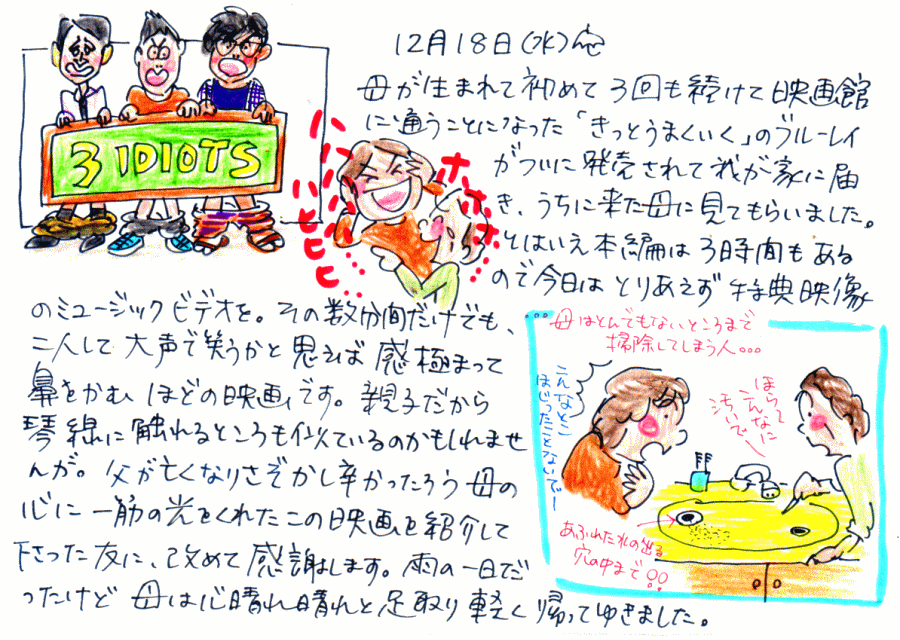 3 IDIOTS
12月18日(水)
母が生まれて初めて3回も続けて映画館
に通うことになった「きっとうまくいく」のブルーレイ
がついに発売されて我が家に届
き、うちに来た母に見てもらいました。
とはいえ本編は3時間もある
ので今日はとりあえず特典映像
のミュージックビデオを。その数分間だけでも、
二人して大声で笑うかと思えば感極まって
鼻をかむほどの映画です。親子だから
琴線に触れるところも似ているのかもしれませ
んが。父が亡くなりさぞかし辛かったろう母の
心に一筋の光をくれたこの映画を紹介して
下さった友に、改めて感謝します。雨の一日だ
ったけど母は心晴れ晴れと足取り軽く帰ってゆきました。
…母はとんでもないところまで
掃除してしまう人…
こんなとこ
ほらって
こんなに
汚いで〜
あふれた水の出る
穴の中まで